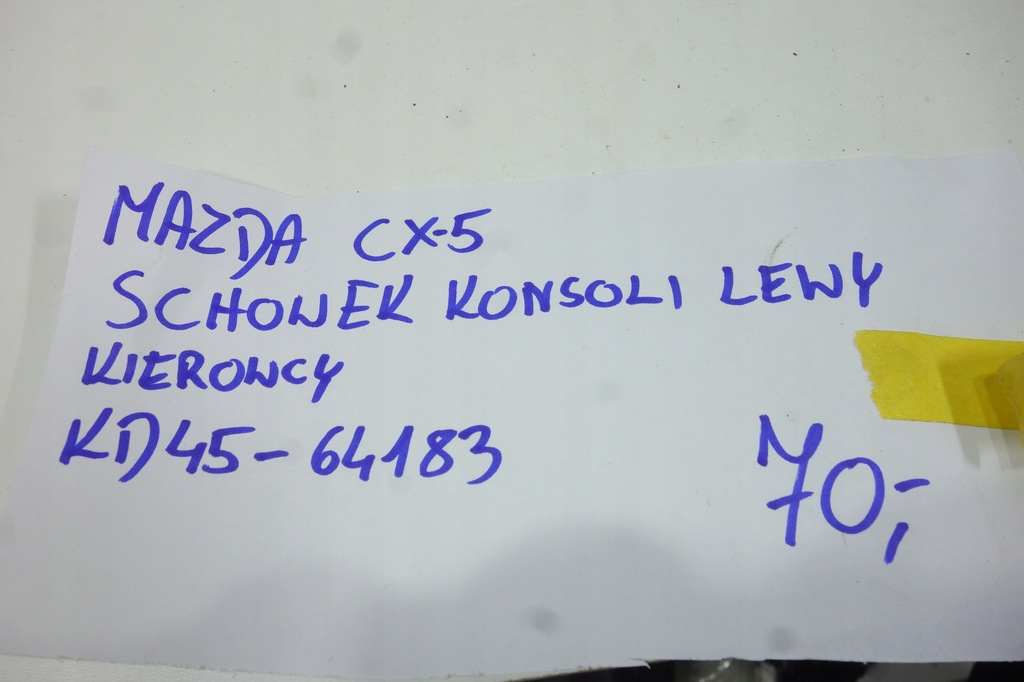 MAZDA CX-5
SCHOWEK KONSOLI LEWY
KIEROWCY
KD45-64183
70,-